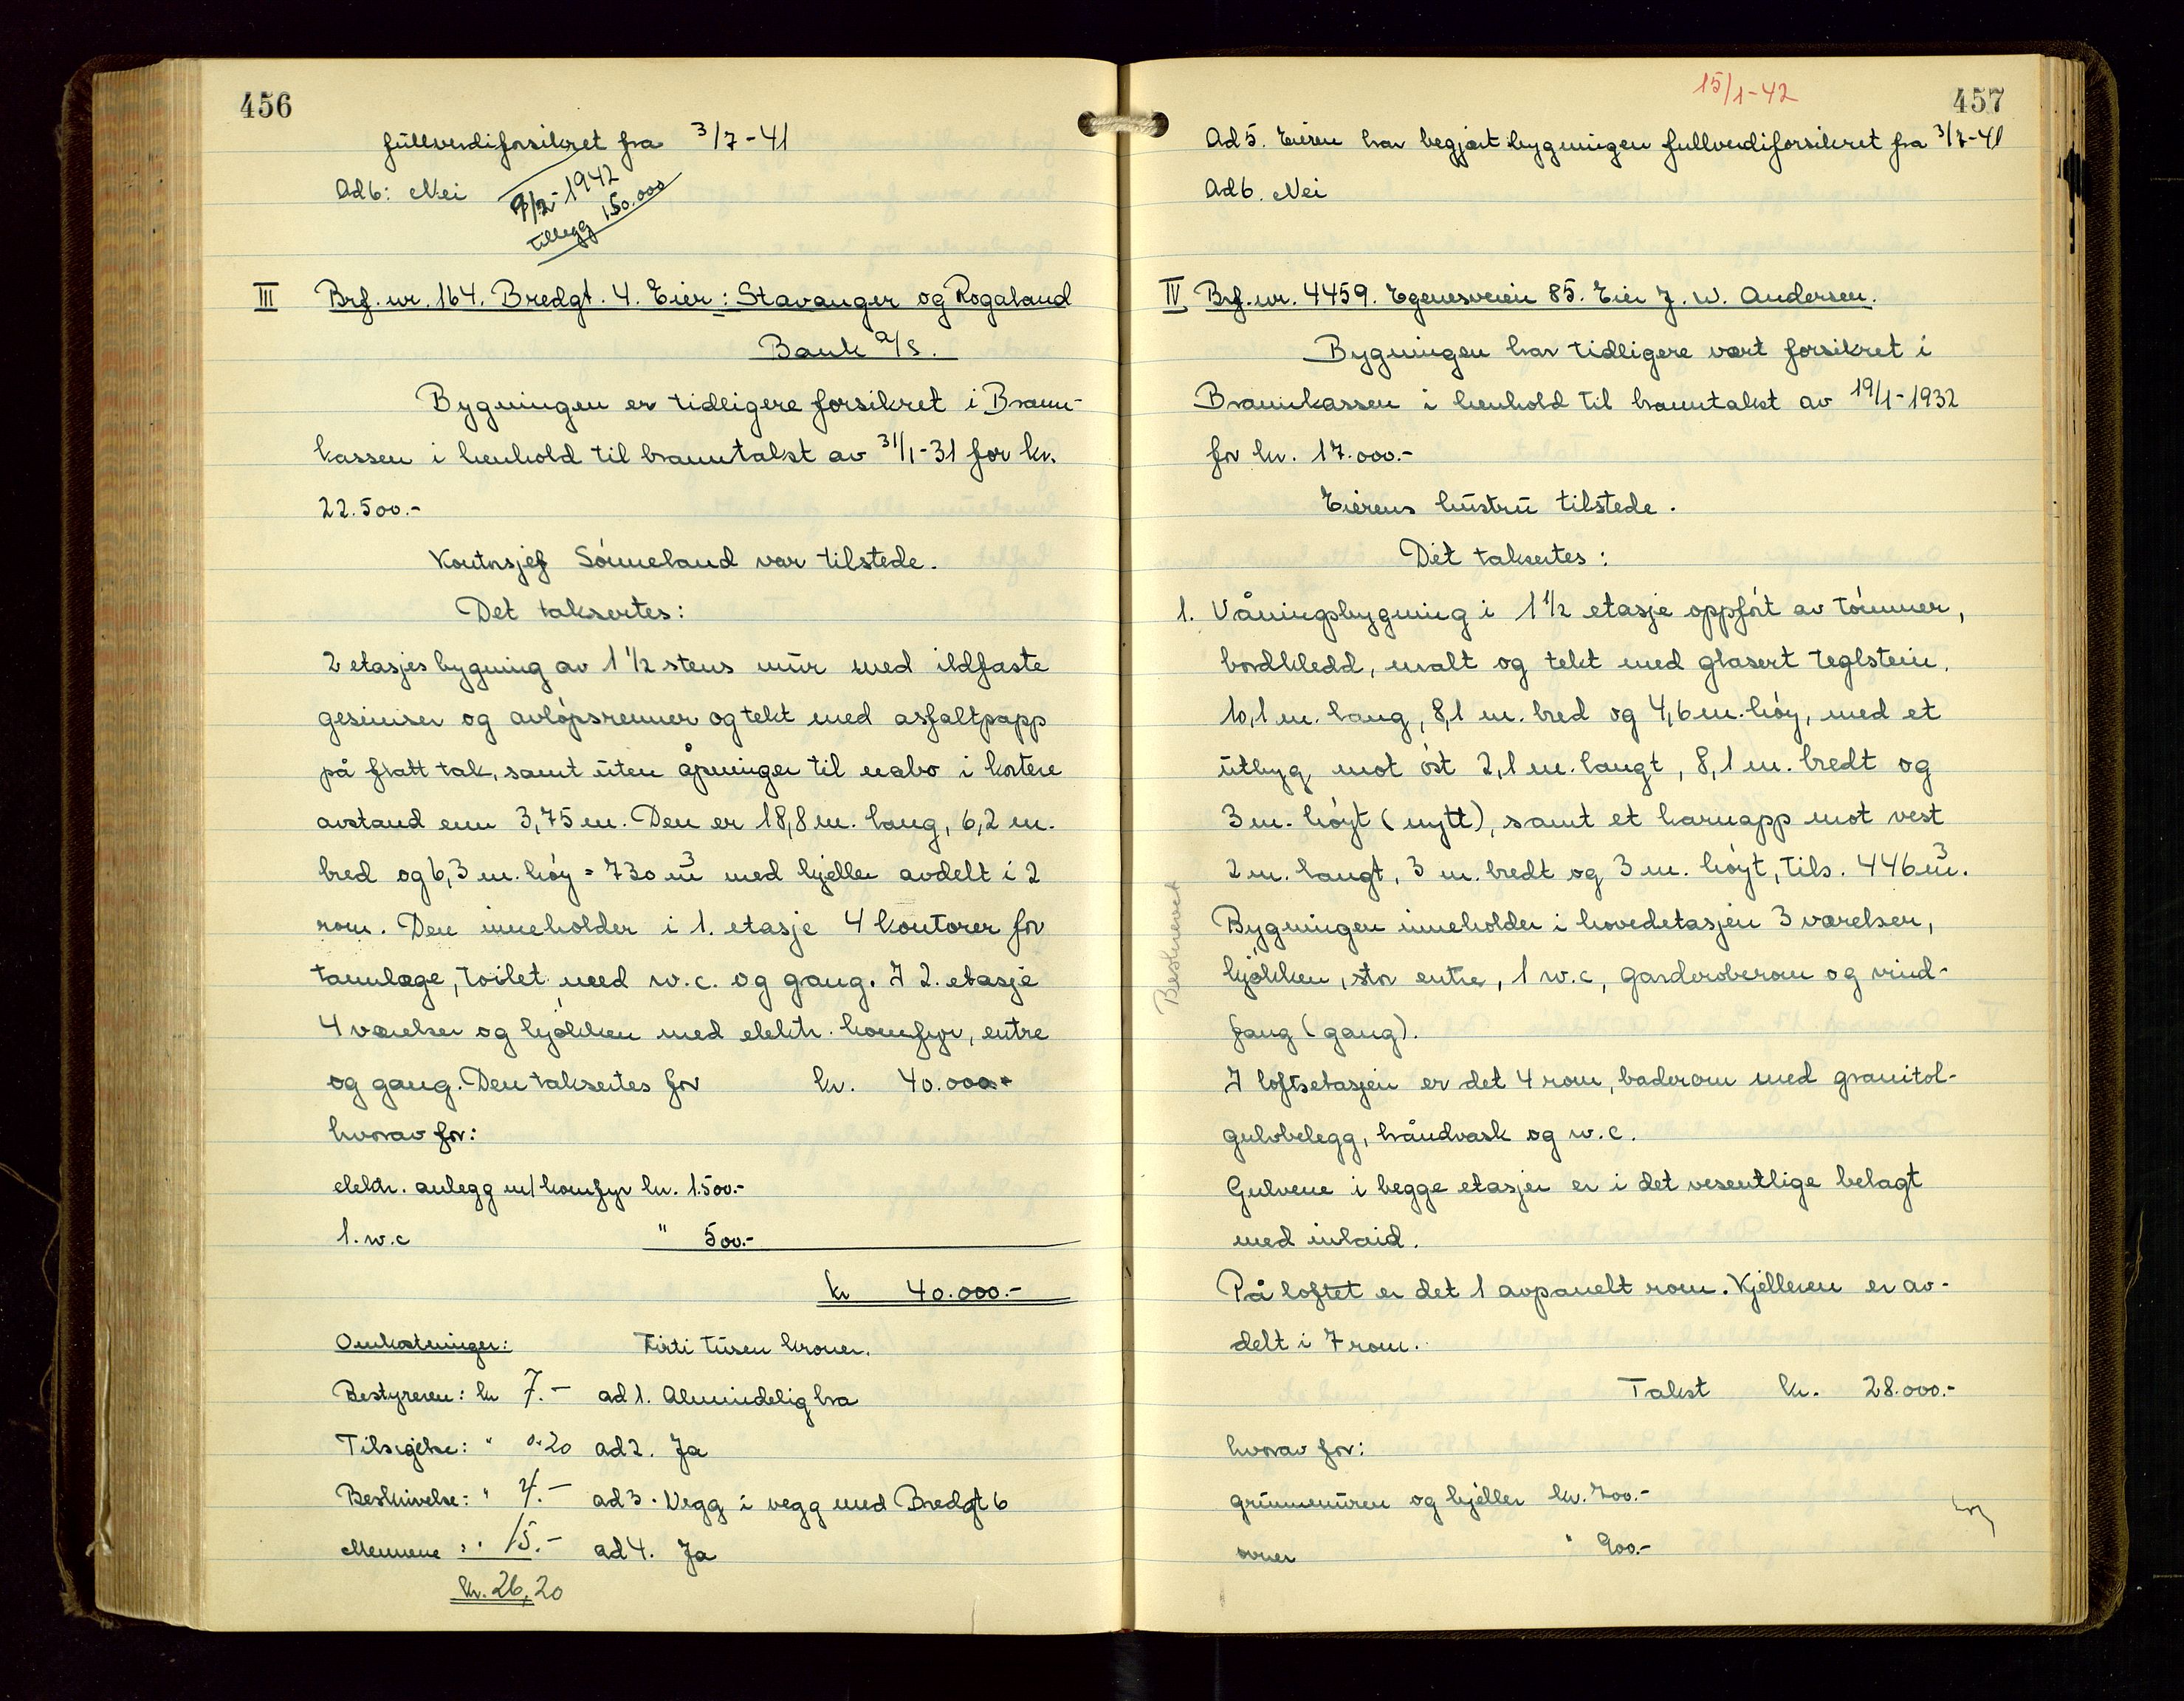 456
fullverdiforsikret fra 3/7-41
Ad 6: Nei
9/2-1942
tillegg 150.000
III Brf. nr. 164. Bredgt. 4. Eier: Stavanger og Rogaland
Bank a/s.
Bygningen er tidligere forsikret i Brann-
kassen i henhold til branntakst av 31/1-31 for kr.
22.500.-
Kontorsjef Sömmeland var tilstede.
Det taksertes:
2 etasjes bygning av 1 1/2 stens mur med ildfaste
gesimser og avlöpsrenner og tekt med asfaltpapp
på flatt tak, samt uten åpninger til nabo i kortere
avstand enn 3,75 m. Den er 18,8 m. lang, 6,2 m.
bred og 6,3 m. höy = 730 m3 med kjeller avdelt i 2
rom. Den inneholder i 1. etasje 4 kontorer for
tannlæge, toilet med w.c. og gang. I 2. etasje
4 værelser og kjökken med elektr. komfyr, entre
og gang. Den taksertes for kr. 40.000.-
hvorav for:
elektr. anlegg m/komfyr kr. 1.500.-
1. w.c " 500.-
kr 40.000.-
Omkostninger: Firti tusen kroner.
Bestyreren: kr 7.- ad 1. Almindelig bra
Tilsigelse: " 0.20 ad 2. Ja
Beskrivelse: " 4.- ad 3. Vegg i vegg med Bredgt 6
Mennene: " 15.- ad 4. Ja
kr. 26,20
15/1-42
457
Ad 5. Eieren har begjært bygningen fullverdiforsikret fra 3/7-41
Ad 6. Nei
IV Brf. nr. 4459. Egenesveien 85. Eier J. W. Andersen.
Bygningen har tidligere vært forsikret i
Brannkassen i henhold til branntakst av 19/1-1932
for kr. 17.000.-
Eierens hustru tilstede.
Det taksertes:
1. Våningsbygning i 1 1/2 etasje oppfört av tömmer,
bordkledd, malt og tekt med glasert teglstein.
10,1 m. lang, 8,1 m. bred og 4,6 m. höy, med et
utbyg mot öst 2,1 m. langt, 8,1 m. bredt og
3 m. höyt (nytt), samt et karnapp mot vest
2 m. langt, 3 m. bredt og 3 m. höyt, tils. 446 m3.
Bygningen inneholder i hovedetasjen 3 værelser,
kjökken, stor entre, 1 w.c, garderoberom og vind-
fang (gang).
I loftsetasjen er det 4 rom, baderom med granitol-
gulvbelegg, håndvask og w.c.
Gulvene i begge etasjer er i det vesentlige belagt
med inlaid.
På loftet er det 1 avpanelt rom. Kjelleren er av-
delt i 7 rom.
Takst kr. 28.000.-
hvorav for:
grunnmuren og kjeller kr. 700.-
ovner " 900.-
Beskrevet